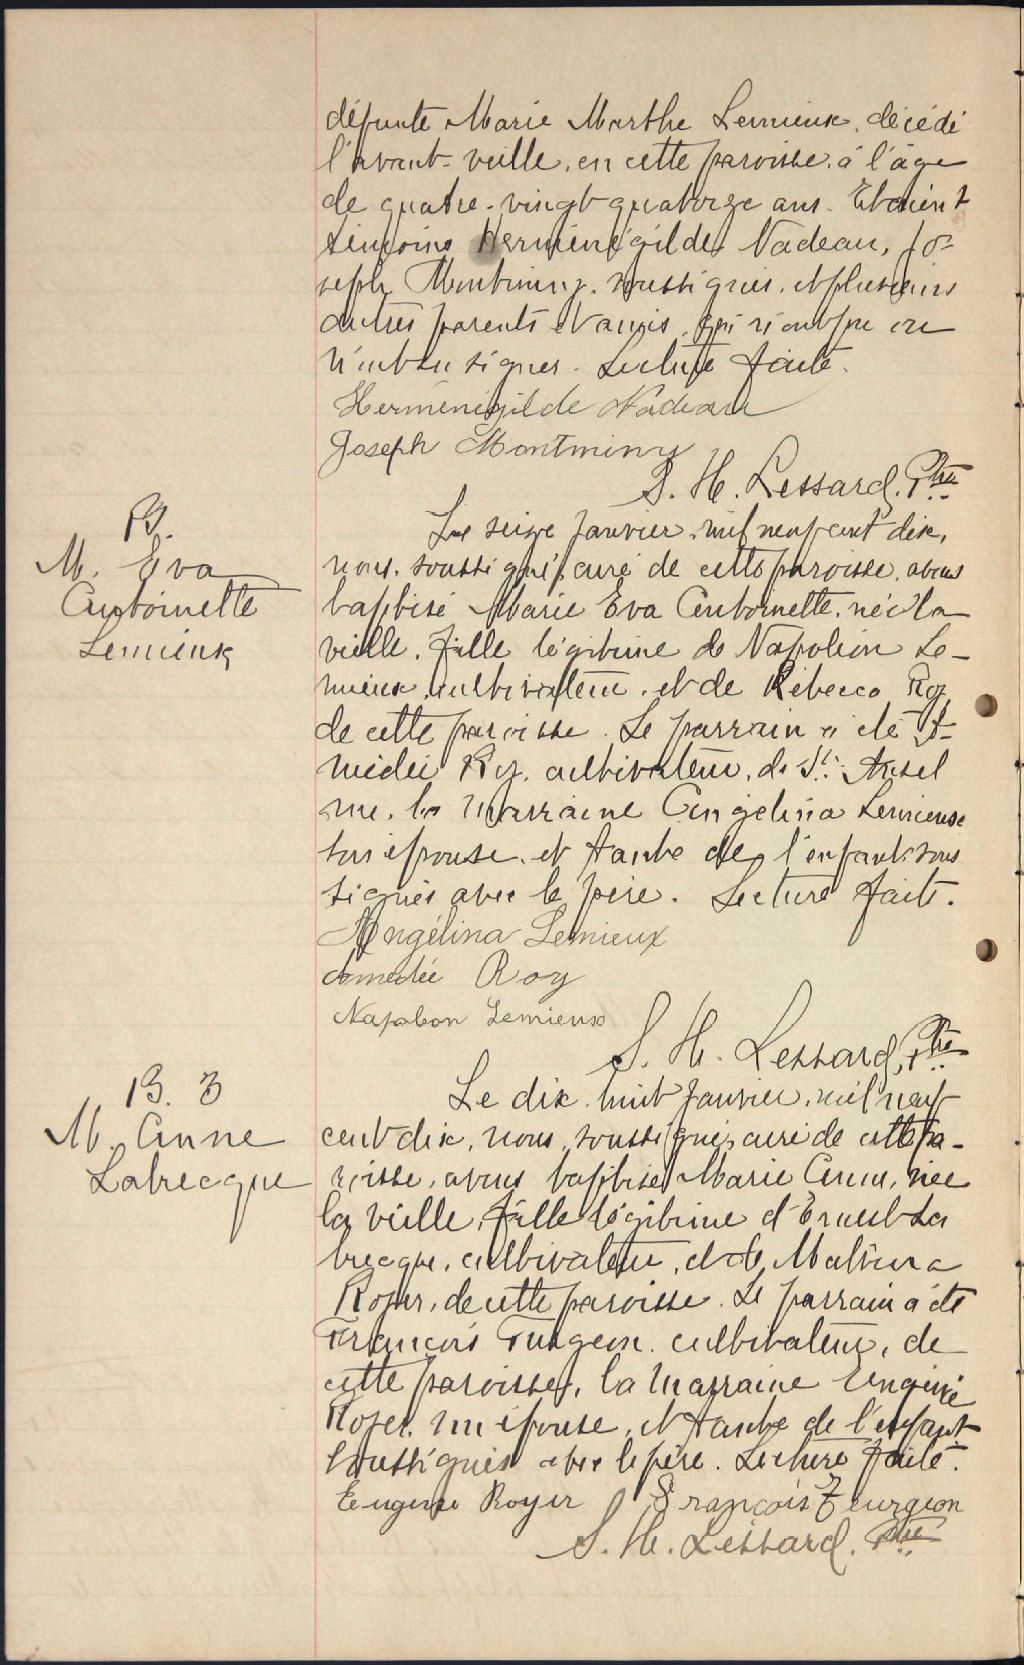 défunte Marie Marthe Lemieux, décédé
l'avant-veille, en cette paroisse, à l'âge
de quatre-vingt-quatorze ans. Etaient
témoins Herménégilde Nadeau, Jo-
seph Montminy, soussignés, et plusieurs
autres parents et amis, qui n'ont pu ou
n'ont su signer. Lecture faite.
Herménégilde Nadeau
Joseph Montminy
S. H. Lessard, Ptre
B.
M. Eva
Antoinette
Lemieux
Le seize Janvier, mil neuf cent dix,
nous, soussigné, curé de cette paroisse, avons
baptisé Marie Eva Antoinette, née la
veille, fille légitime de Napoléon Le-
mieux, cultivateur, et de Rébecca Roy,
de cette paroisse. Le parrain a été A-
médée Roy, cultivateur, de St. Ansel
me, la marraine Angelina Lemieux
son épouse, et tante de l'enfant, sous
signés avec le père. Lecture faite.
Angélina Lemieux
Amedée Roy
Napoleon Lemieux
S. H. Lessard, Ptre
B. 3
M. Anne
Labrecque
Le dix-huit Janvier, mil neuf
cent dix, nous, soussigné, curé de cette pa-
roisse, avons baptisé Marie Anne, née
la veille, fille légitime d'Ernest La
brecque, cultivateur, et de Malvina
Royer, de cette paroisse. Le parrain a été
François Turgeon, cultivateur, de
cette paroisse, la marraine Eugénie
Royer, son épouse, et tante de l'enfant
soussignés avec le père. Lecture faite.
Eugenie Royer François Teurgeon
S. H. Lessard, Ptre